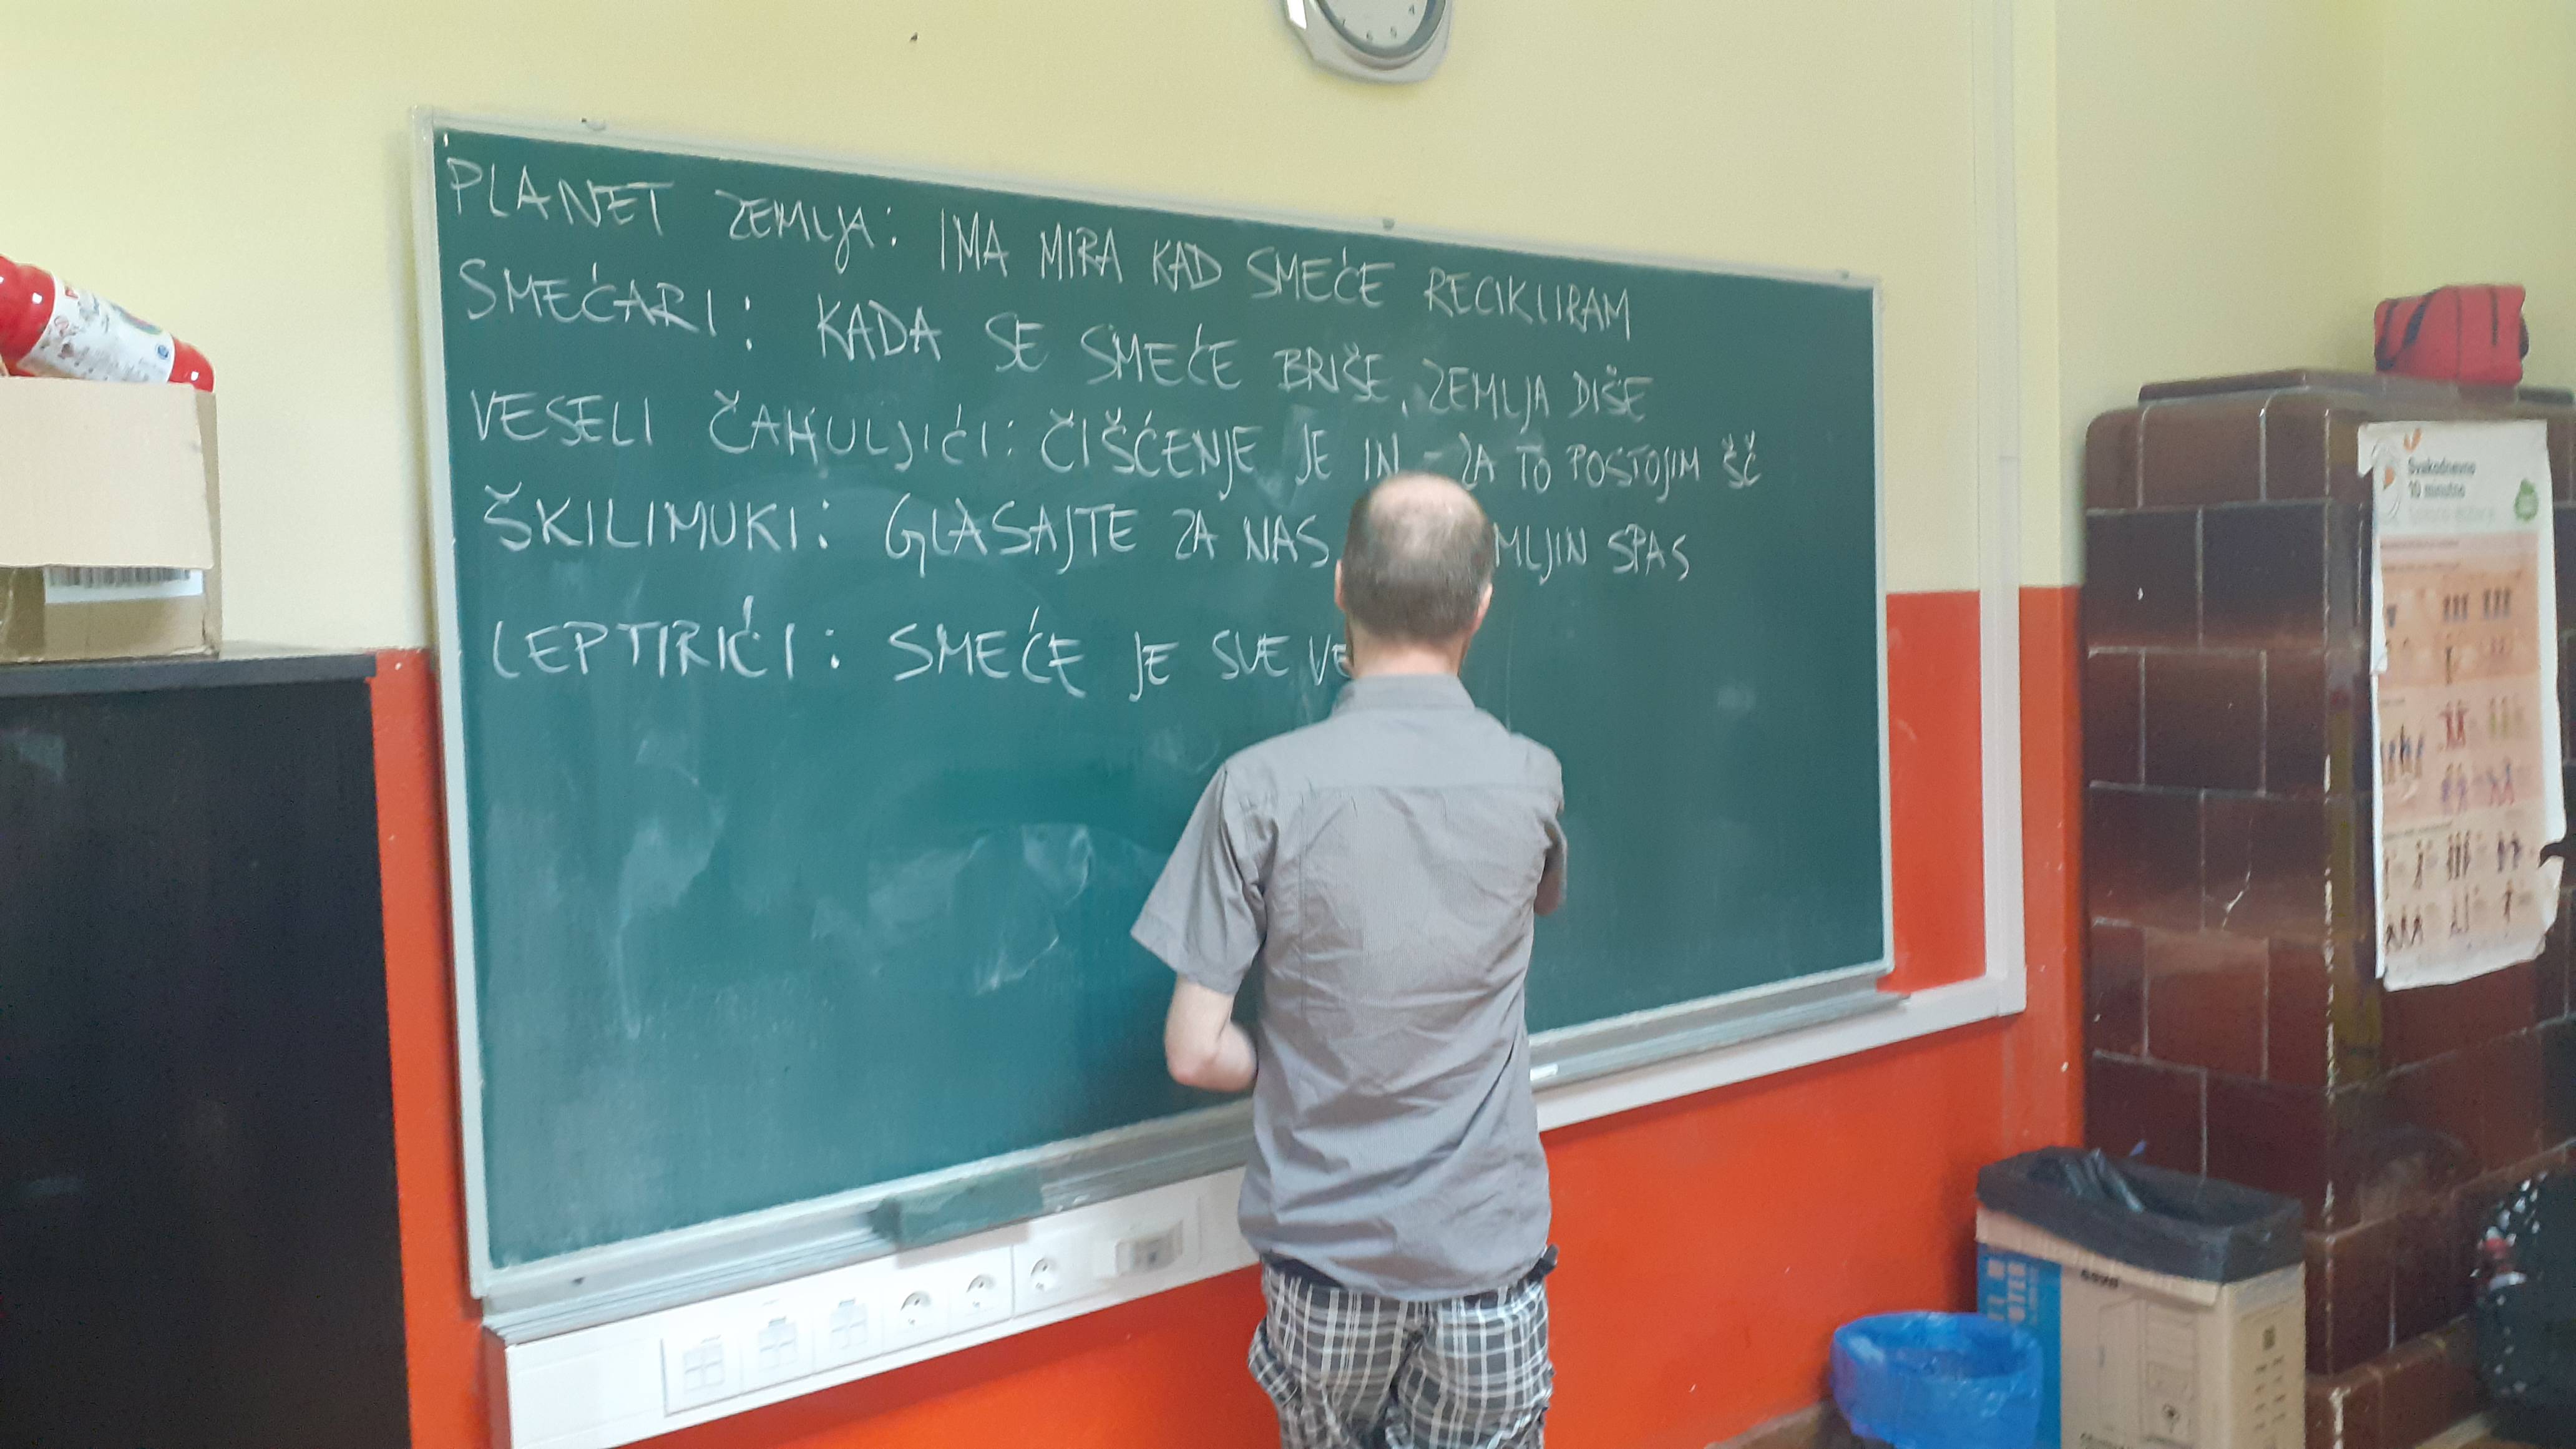 PLANET ZEMLJA: IMA MIRA KAD SMEĆE RECIKLIRAM
SMEĆARI: KADA SE SMEĆE BRIŠE, ZEMLJA DIŠE
VESELI ČAHULJIĆI: ČIŠĆENJE JE IN - ZA TO POSTOJIM ŠČ
ŠKILIMUKI: GLASAJTE ZA NAS MLJIN SPAS
LEPTIRIĆI: SMEĆE JE SVE VE
Svakodnevno
10 minutno